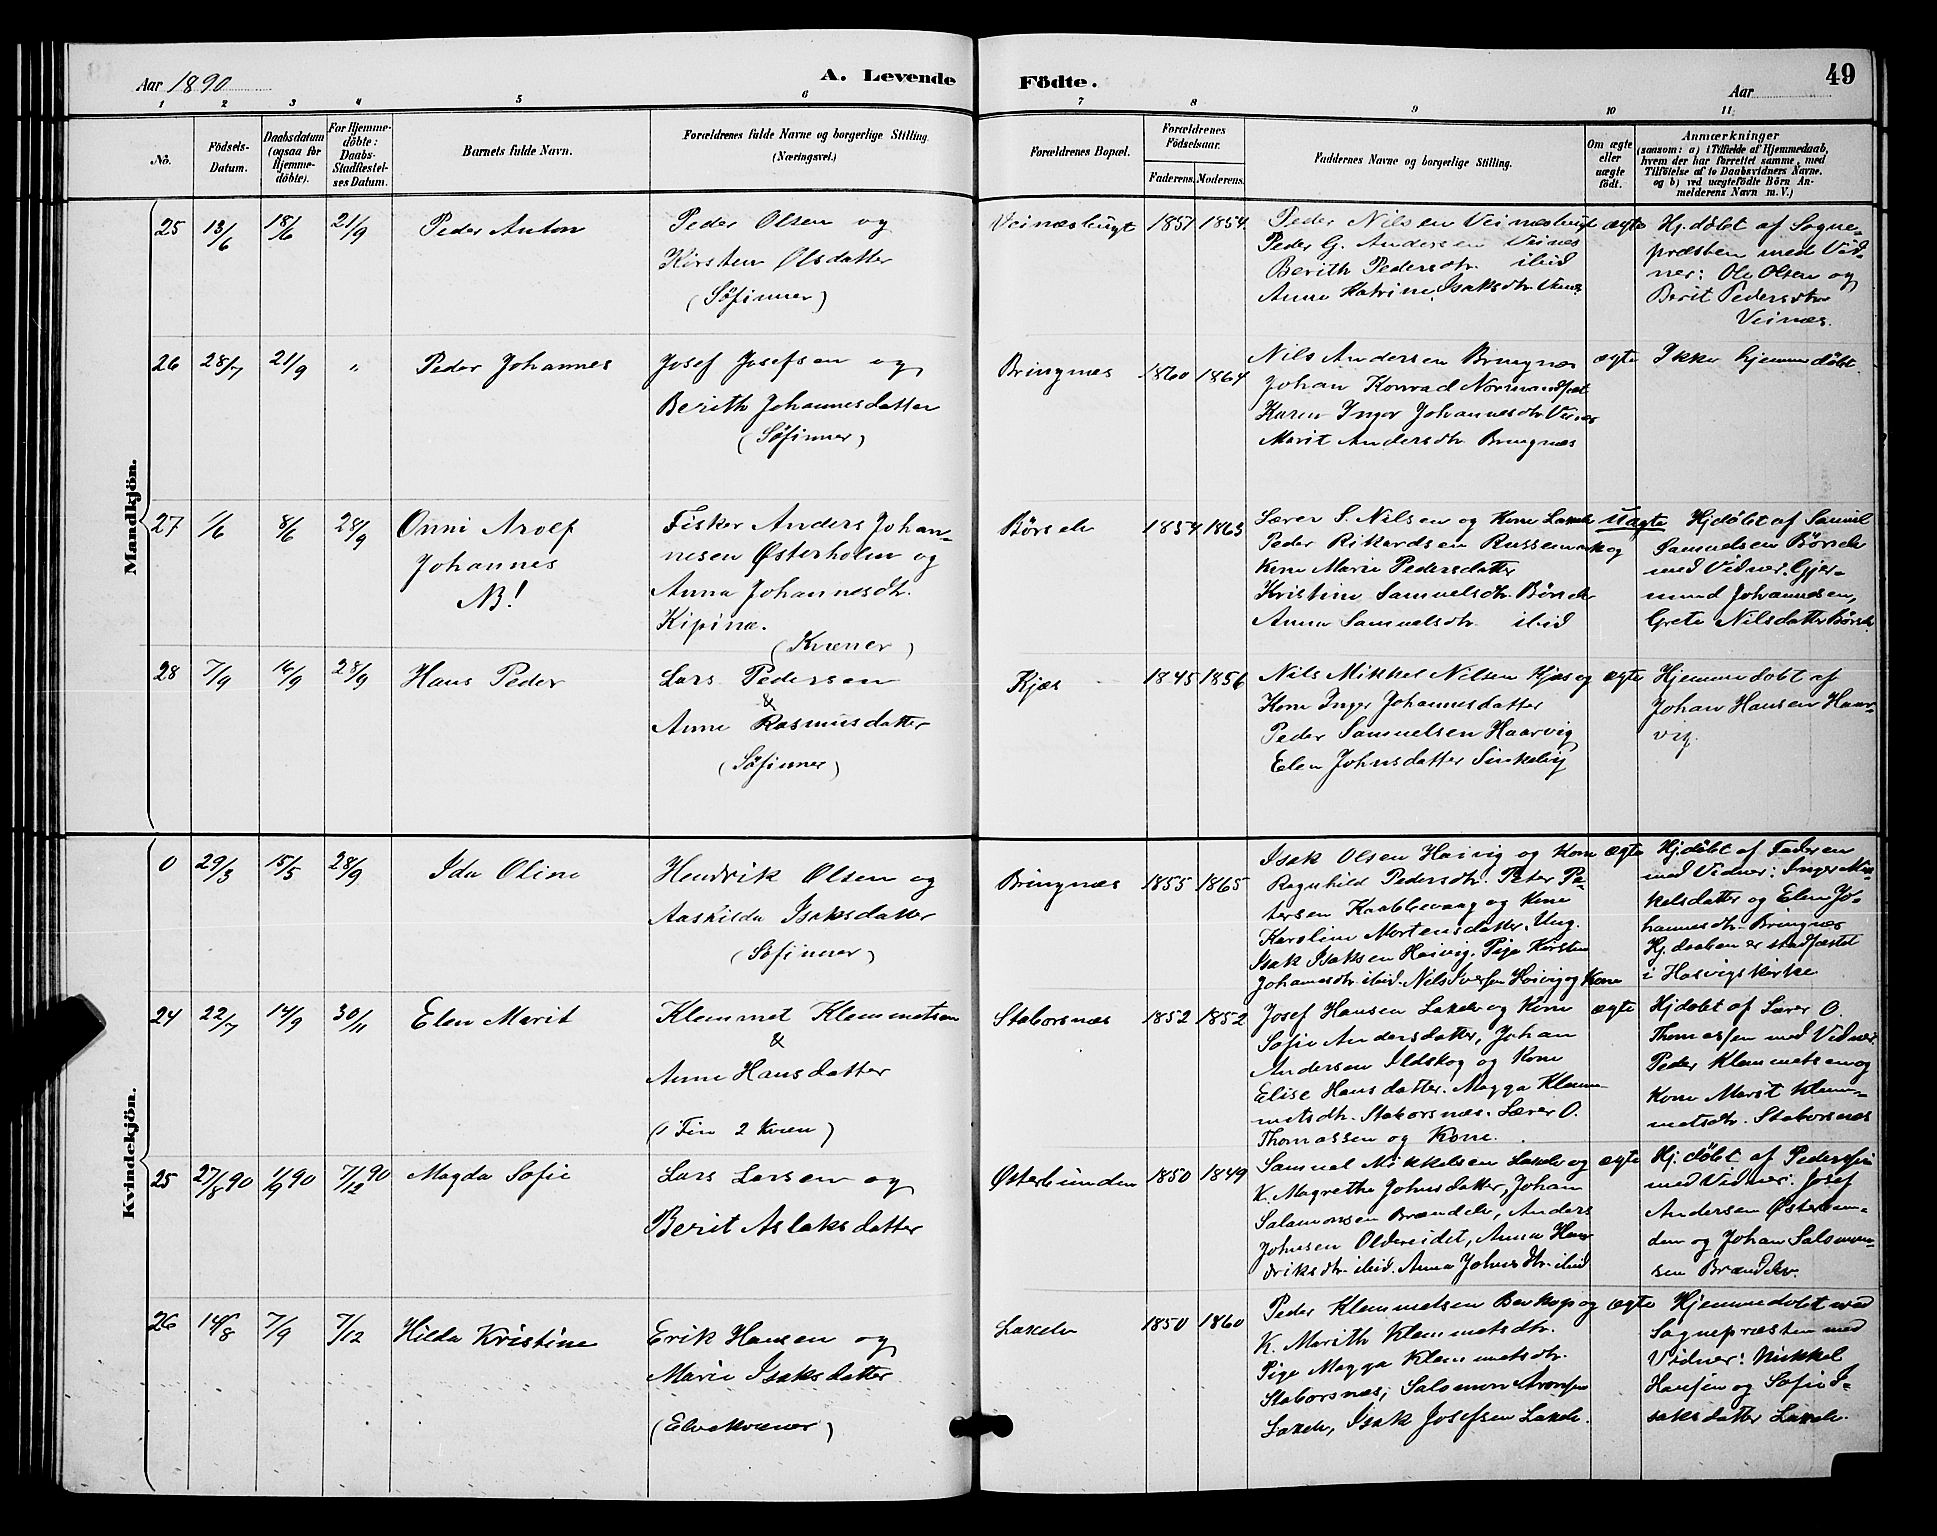 Aar 1890
A. Levende Födte.
49
Aar
1 2 3 4 5 6 7 8 9 10 11
No.
Födsels-Datum.
Daabsdatum (ogsaa for Hjemme-döbte).
For Hjemme-döbte: Daabs-Stadfæstel-ses Datum.
Barnets fulde Navn.
Forældrenes fulde Navne og borgerlige Stilling. (Næringsvei.)
Forældrenes Bopæl.
Forældrenes Födselsaar.
Faderens. Moderens.
Faddernes Navne og borgerlige Stilling.
Om ægte eller uægte födt.
Anmærkninger
(saasom: a) i Tilfælde af Hjemmedaab,
hvem der har forrettet samme, med
Tilföielse af to Daabsvidners Navne,
og b) ved uægtefödte Börn An-
melderens Navn m. V.)
Mandkjön.
25 13/6 18/6 21/9 Peder Anton
Peder Olsen og
Kirsten Olsdatter
(Söfinner)
1851 1854
Peder Nilsen
Peder G. Andersen Veines
Berith Pedersdtr. ibid
Anne Katrine Isaksdtr.
ægte
Hj. döbt af Sogne-
præsten med Vid-
ner: Ole Olsen og
Berit Pedersdtr
Veines.
26 28/7 21/9 " Peder Johannes
Josef Josefsen og
Berith Johannesdatter
(Söfinner)
Bringnes 1860 1864
Nils Andersen Bringnes
Johan Konrad
Karen Inger Johannesdtr
Marit Andersdtr Bringnes
ægte
Ikke hjemmedöbt.
27 1/6 8/6 28/9 Onni Arolf
Johannes
NB!
Fisker Anders Johan-
nesen Østerholm og
Anna Johannesdtr.
Kipinæ.
(Kvæner)
Börselv 1854 1863
Lærer S. Nilsen og Kone Lakselv
Peder Rikardsen
Kone Marie Pedersdatter
Kristine Samuelsdtr. Börselv
Anna Samuelsdtr. ibid
uægte
Hjdöbt af Samuel
Samuelsen Börselv
med Vidner:
Johannesen,
Grete Nilsdatter Börselv
28 7/9 16/9 28/9 Hans Peder
Lars Pedersen
&
Anne Rasmusdatter
(Söfinner)
Kjæs 1845 1856
Nils Mikkel Nilsen Kjæs og
Kone Inger Johannesdatter
Peder Samuelsen Haarvig
Elen Johnsdatter
ægte
Hjemmedöbt af
Johan Hansen Haar-
vig.
Kvindekjön.
0 29/3 15/5 28/9 Ida Oline
Hendrik Olsen og
Aaskilda Isaksdatter
(Söfinner)
Bringnes 1855 1865
Isak Olsen Hasvig og Kone
Ragnhild Pedersdtr. Peter Pe-
tersen Kaablevaag og Kone
Karoline Mortensdatter. Ung.
Isak Isaksen Hasvig. Pige Kirsten
Johannesdtr ibid. Nils Iversen Hasvig og Kone
ægte
Hj. döbt af Faderen
med Vidner: Inger Mik-
kelsdatter og Elen Jo-
hannesdtr. Bringnes
Hj. daaben er stadfæstet
i Hasvigs kirke
24 22/7 14/9 30/11 Elen Marit
Klemmet Klemmetsen
&
Anne Hansdatter
(1 Fin 2 Kvæn)
Staborsnæs 1852 1852
Josef Hansen Lakselv og Kone
Sofie Andersdatter, Johan
Andersen Ildskog og Kone
Elise Hansdatter. Magga Klem-
metsdtr. Staborsnæs. Lærer O.
Thomassen og Kone.
ægte
Hjdöbt af Lærer O.
Thomassen med Vidner:
Peder Klemmetsen og
Kone Marit Klem-
metsdtr. Staborsnæs
25 27/8 90 1/9 90 7/12 90 Magda Sofie
Lars Larsen og
Berit Aslaksdatter
Østerbunden 1850 1849
Samuel Mikkelsen Lakselv og
K. Magrethe Johnsdatter, Johan
Salamonsen Brændelv, Anders
Johnsen Oldereidet, Anna Hen-
driksdtr. ibid. Anna Johnsdtr. ibid
ægte
Hj. döbt af
med Vidner: Josef
Andersen Østerbun-
den og Johan Salomon-
sen Brændelv.
26 14/8 7/9 7/12 Hilda Kristine
Erik Hansen og
Marie Isaksdatter.
(Elvekvæner)
Lakselv 1850 1860
Peder Klemmetsen og
K. Marith Klemmetsdtr.
Pige Magga Klemmetsdtr.
Staborsnæs, Salomon Aronsen
Lakselv, Isak Josefsen Lakselv.
ægte
Hjemmedöbt ved
Sognepræsten med
Vidner: Mikkel
Hansen og Sofie I-
saksdatter Lakselv.